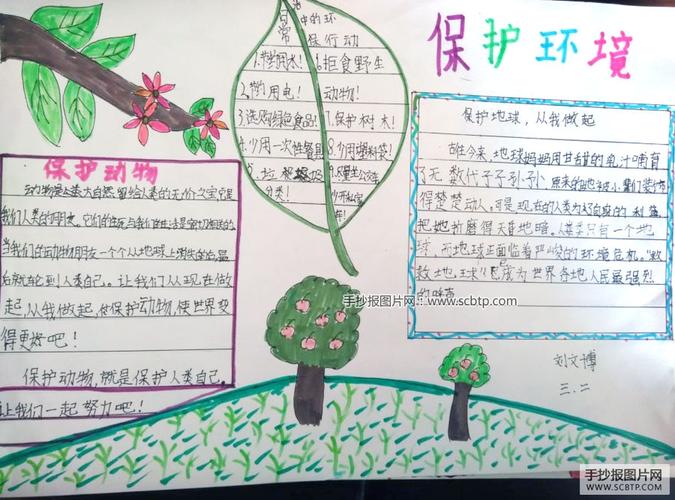 保护环境
日常
中的环
保行动
1.节约用水!
6.拒食野生
2.节约用电!
动物!
3.选购绿色食品!
7.保护树木!
4.少用一次性餐具
8.少用塑料袋!
分类!
保护动物
我们人类的好朋友。它们的生死与我们的生活是密切相关的。
当我们的动物朋友一个个从地球上消失的话,最
后就车轮到人类自己。让我们从现在做
起,从我做起,保护动物,使世界变
得更好吧!
保护动物,就是保护人类自己。
让我们一起努力吧!
保护地球,从我做起
古往今来,地球妈妈用甘甜的乳汁哺育
了无数代子子孙孙。原来的地球被小辈们装饰
得楚楚动人。可是,现在的人类为了自我的利益,
把她折磨得天昏地暗。人类只有一个地
球,而地球正面临着严峻的环境危机。“救
救地球”已成为世界各地人民最强烈
的呼声
刘文博
三.二
手抄报图片网:www.scbtp.com
手抄报图片网
WWW.SCBTP.COM